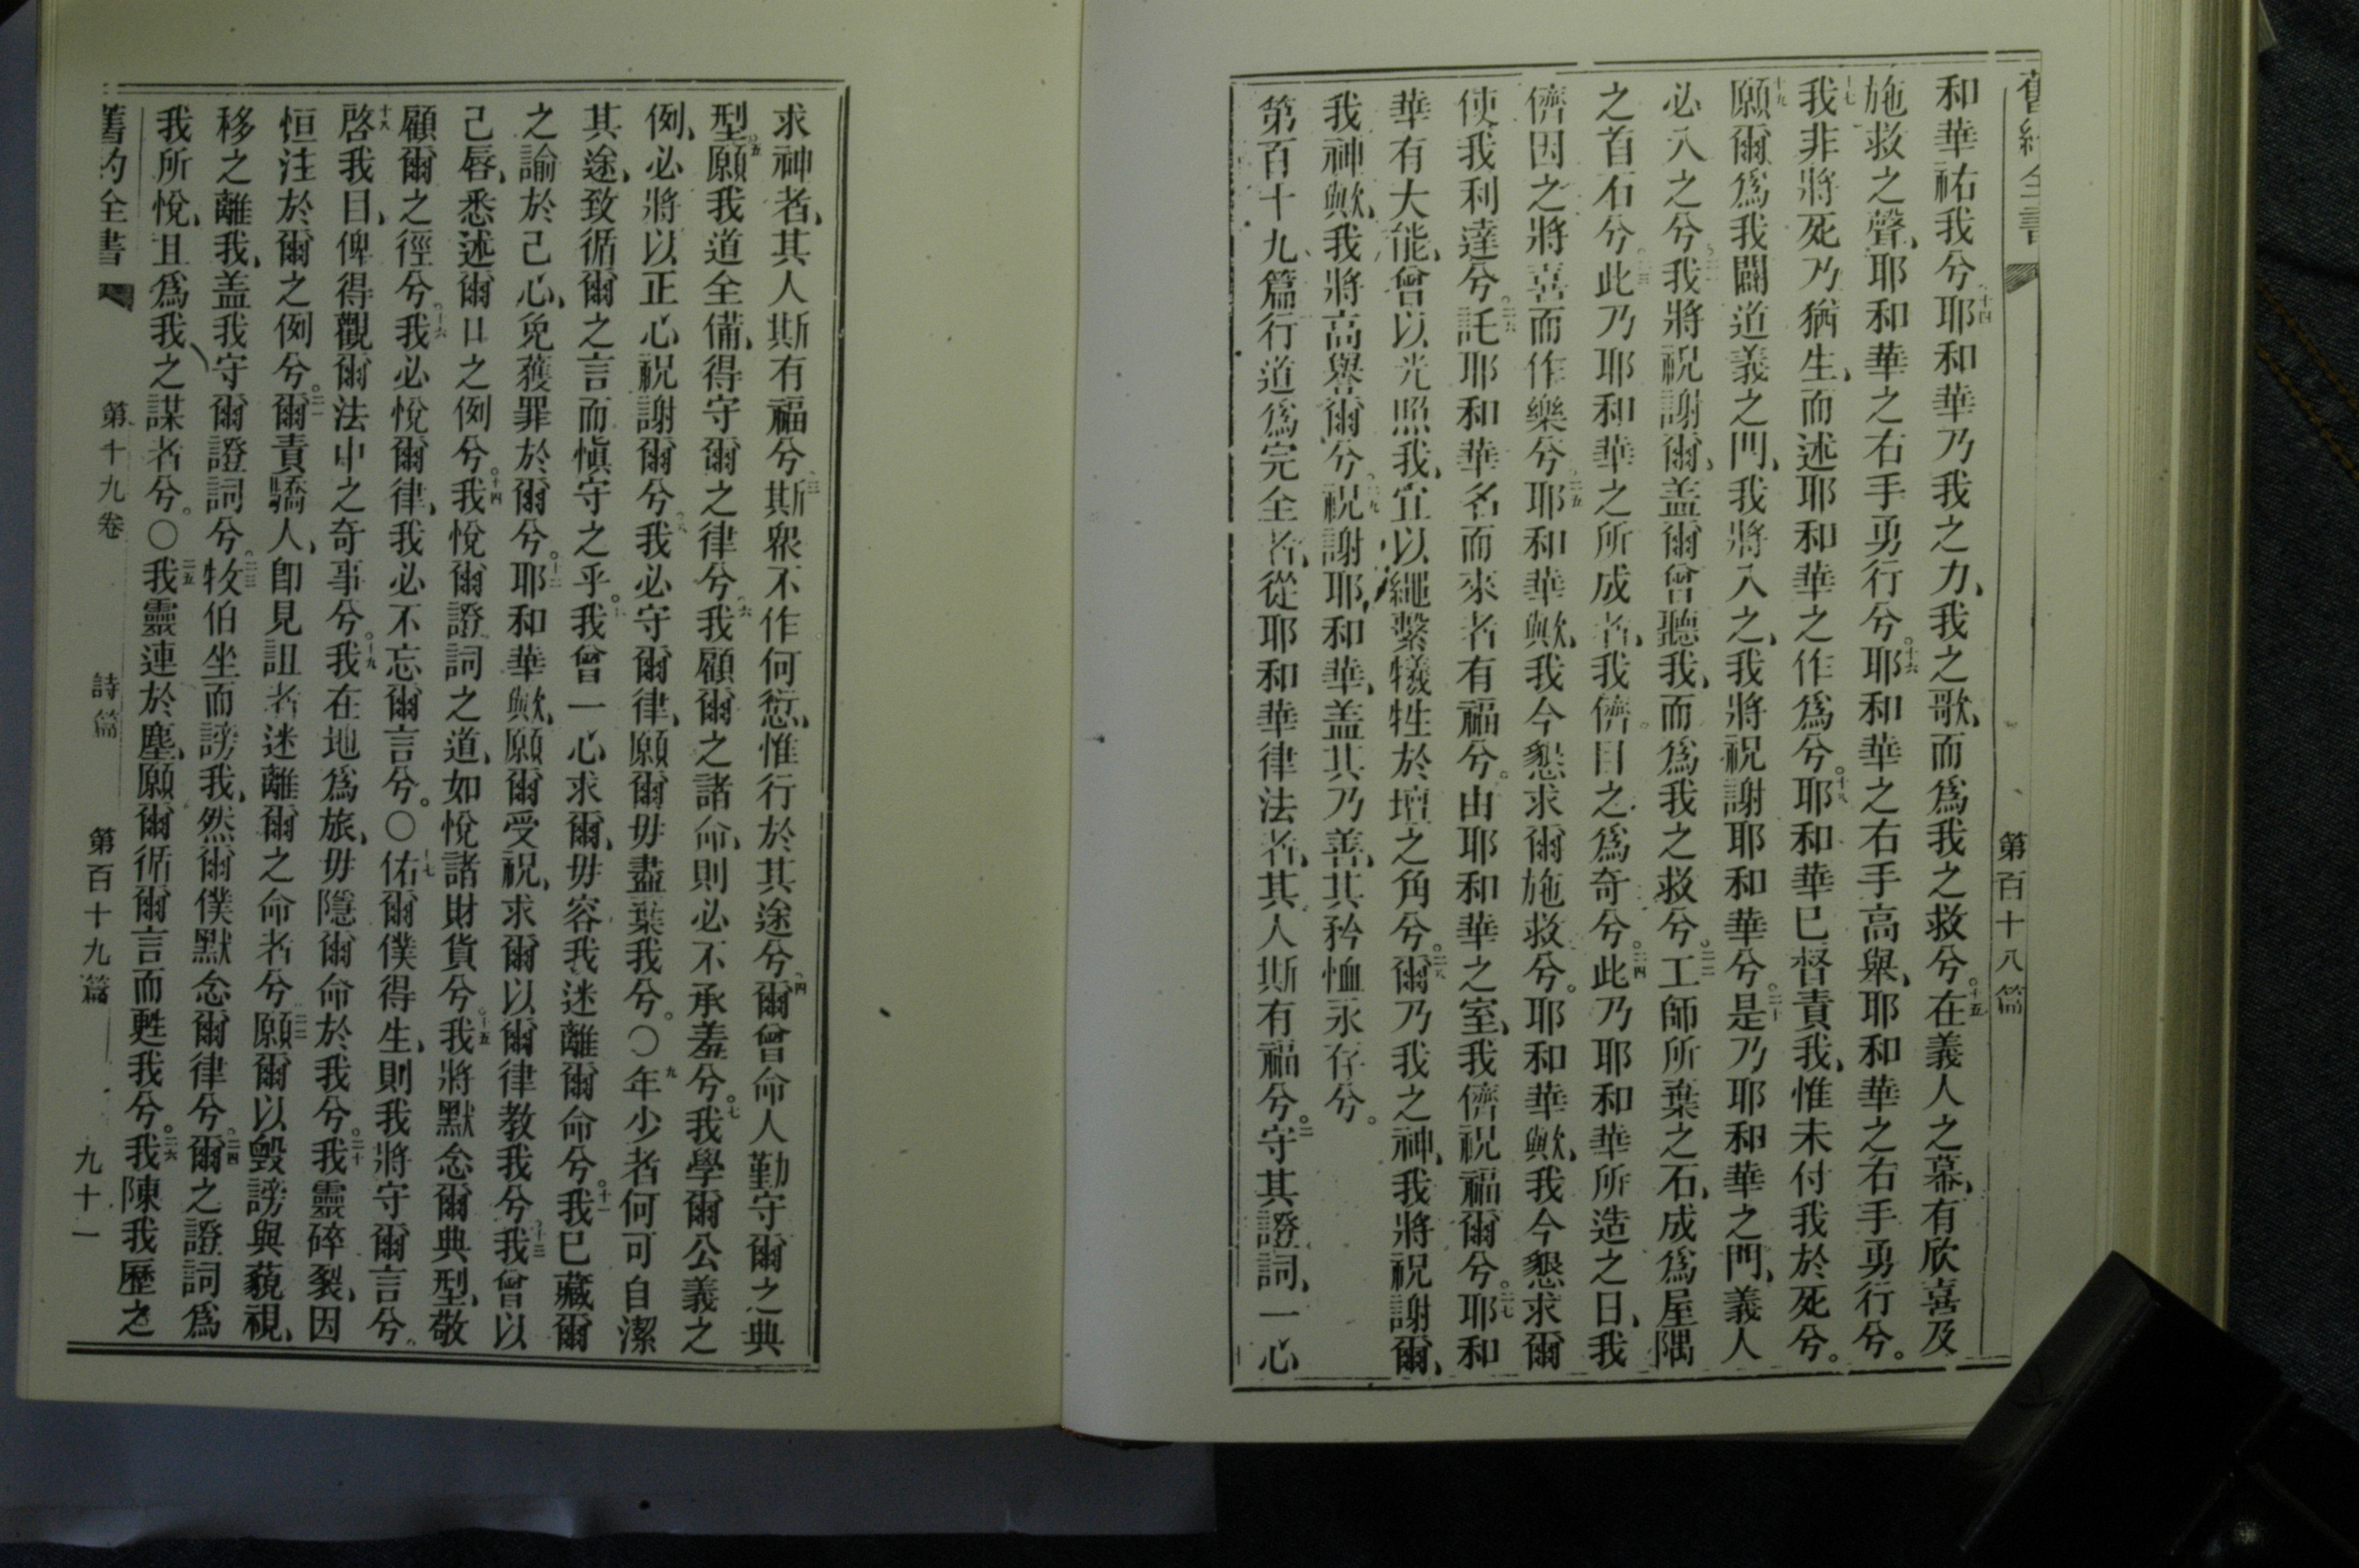 舊約全書
第百十八篇
和華祐我兮、十四耶和華乃我之力、我之歌、而爲我之救兮。十五在義人之幕、有欣喜及
施救之聲、耶和華之右手勇行兮。十六耶和華之右手高舉、耶和華之右手勇行兮。
十七我非將死乃猶生、而述耶和華之作爲兮。十八耶和華已督責我、惟未付我於死兮。
十九願爾爲我闢道義之門、我將入之、我將祝謝耶和華兮。二十是乃耶和華之門、義人
必入之兮。二一我將祝謝爾、盖爾曾聽我、而爲我之救兮。二二工師所棄之石、成爲屋隅
之首石兮。二三此乃耶和華之所成者、我儕目之爲奇兮。二四此乃耶和華所造之日、我
儕因之將喜而作樂兮。二五耶和華歟、我今懇求爾施救兮。耶和華歟、我今懇求爾
使我利達兮。二六託耶和華名而來者有福兮。由耶和華之室、我儕祝福爾兮。二七耶和
華有大能、曾以光照我、宜以繩繫犧牲於壇之角兮。二八爾乃我之神、我將祝謝爾、
我神歟、我將高舉爾兮。二九祝謝耶和華、盖其乃善、其矜恤永存兮。
第百十九篇行道爲完全者、從耶和華律法者、其人斯有福兮。二守其證詞、一心
求神者、其人斯有福兮。三斯衆不作何愆、惟行於其途兮。四爾曾命人勤守爾之典
型。五願我道全備、得守爾之律兮。六我顧爾之諸命、則必不承羞兮。七我學爾公義之
例、必將以正心祝謝爾兮。八我必守爾律、願爾毋盡棄我兮。〇九年少者何可自潔
其途、致循爾之言而愼守之乎。十我曾一心求爾、毋容我迷離爾命兮。十一我已藏爾
之諭於己心、免獲罪於爾兮。十二耶和華歟、願爾受祝、求爾以爾律教我兮。十三我曾以
己唇、悉述爾口之例兮。十四我悅爾證詞之道、如悅諸財貨兮。十五我將默念爾典型、敬
顧爾之徑兮。十六我必悅爾律、我必不忘爾言兮。〇十七佑爾僕得生、則我將守爾言兮。
十八啓我目、俾得觀爾法中之奇事兮。十九我在地爲旅、毋隱爾命於我兮。二十我靈碎裂、因
恒注於爾之例兮。二一爾責驕人、卽見詛者迷離爾之命者兮。二二願爾以毀謗與藐視、
移之離我、盖我守爾證詞兮。二三牧伯坐而謗我、然爾僕默念爾律兮。二四爾之證詞爲
我所悅、且爲我之謀者兮。〇二五我靈連於塵、願爾循爾言而甦我兮。二六我陳我歷之
舊約全書
第十九卷
詩篇
第百十九篇
九十一